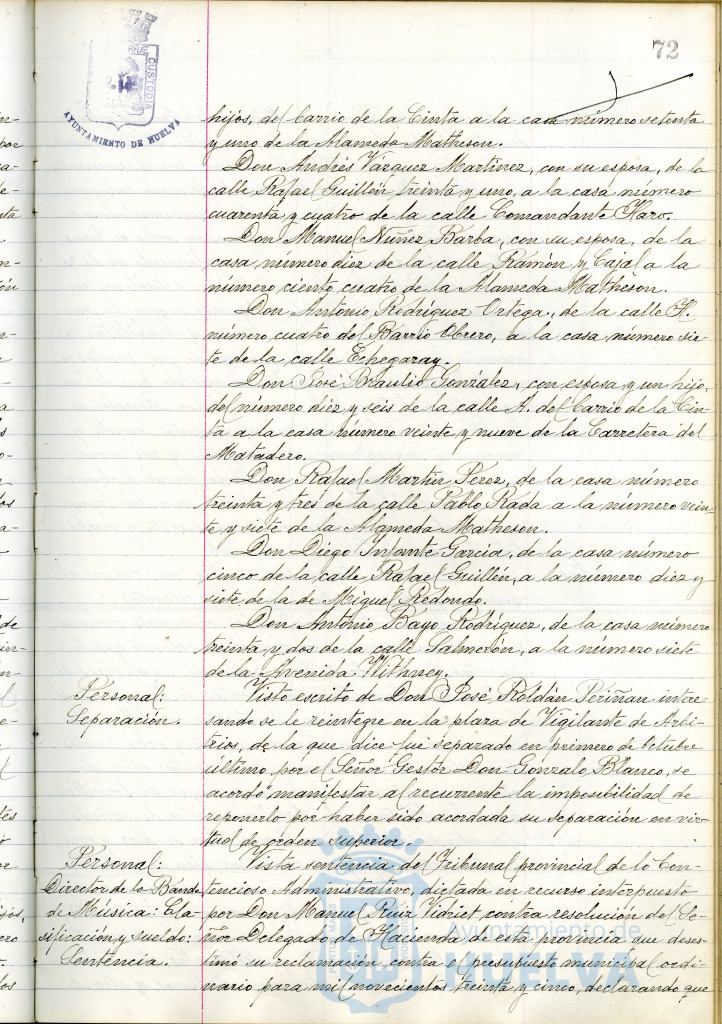 72
CUSTODIA
AYUNTAMIENTO DE HUELVA
hijos, del barrio de la Cinta a la casa número setenta
y uno de la Alameda Matheson.
Don Andrés Vázquez Martínez, con su esposa, de la
calle Rafael Guillén treinta y uno, a la casa número
cuarenta y cuatro de la calle Comandante Haro.
Don Manuel Núñez Barba, con su esposa, de la
casa número diez de la calle Ramón y Cajal a la
número ciento cuatro de la Alameda Matheson.
Don Antonio Rodríguez Ortega, de la calle H.
número cuatro del Barrio Obrero, a la casa número sie-
te de la calle Echegaray.
Don José Braulio González, con esposa y un hijo,
del número diez y seis de la calle A. del barrio de la Cin-
ta a la casa número veinte y nueve de la Carretera del
Matadero.
Don Rafael Martín Pérez, de la casa número
treinta y tres de la calle Pablo Rada a la número vein-
te y siete de la Alameda Matheson.
Don Diego Infante García, de la casa número
cinco de la calle Rafael Guillén, a la número diez y
siete de la de Miguel Redondo.
Don Antonio Bayo Rodríguez, de la casa número
treinta y dos de la calle Salmerón, a la número siete
de la Avenida Withney.
Personal:
Separación.
Visto escrito de Don José Roldán Periñan intere-
sando se le reintegre en la plaza de Vigilante de Arbi-
trios, de la que dice fué separado en primero de Octubre
último, por el Señor Gestor Don Gonzalo Blanco, se
acordó manifestar al recurrente la imposibilidad de
reponerlo por haber sido acordada su separación en vir-
tud de orden superior.
Personal:
Director de la Banda
de Música: Cla-
sificación y sueldo:
Sentencia.
Vista sentencia del Tribunal provincial de lo Con-
tencioso Administrativo, dictada en recurso interpuesto
por Don Manuel Ruiz Vidriet contra resolución del Se-
ñor Delegado de Hacienda de esta provincia que deses-
timó su reclamación contra el presupuesto municipal ordi-
nario para mil novecientos treinta y cinco, declarando que
Ayuntamiento de
HUELVA